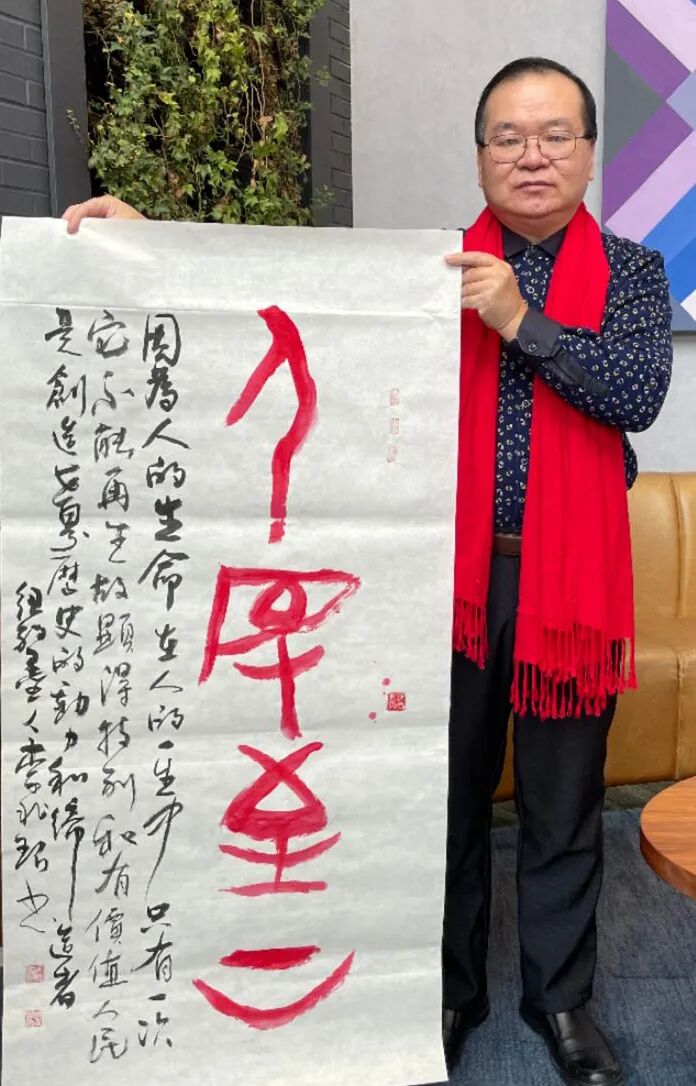 人民至上
因為人的生命在人的一生中只有一次
它不能再生故顯得特別和有價值人民
是創造世界歷史的動力和締造者
紐約墨人李兆